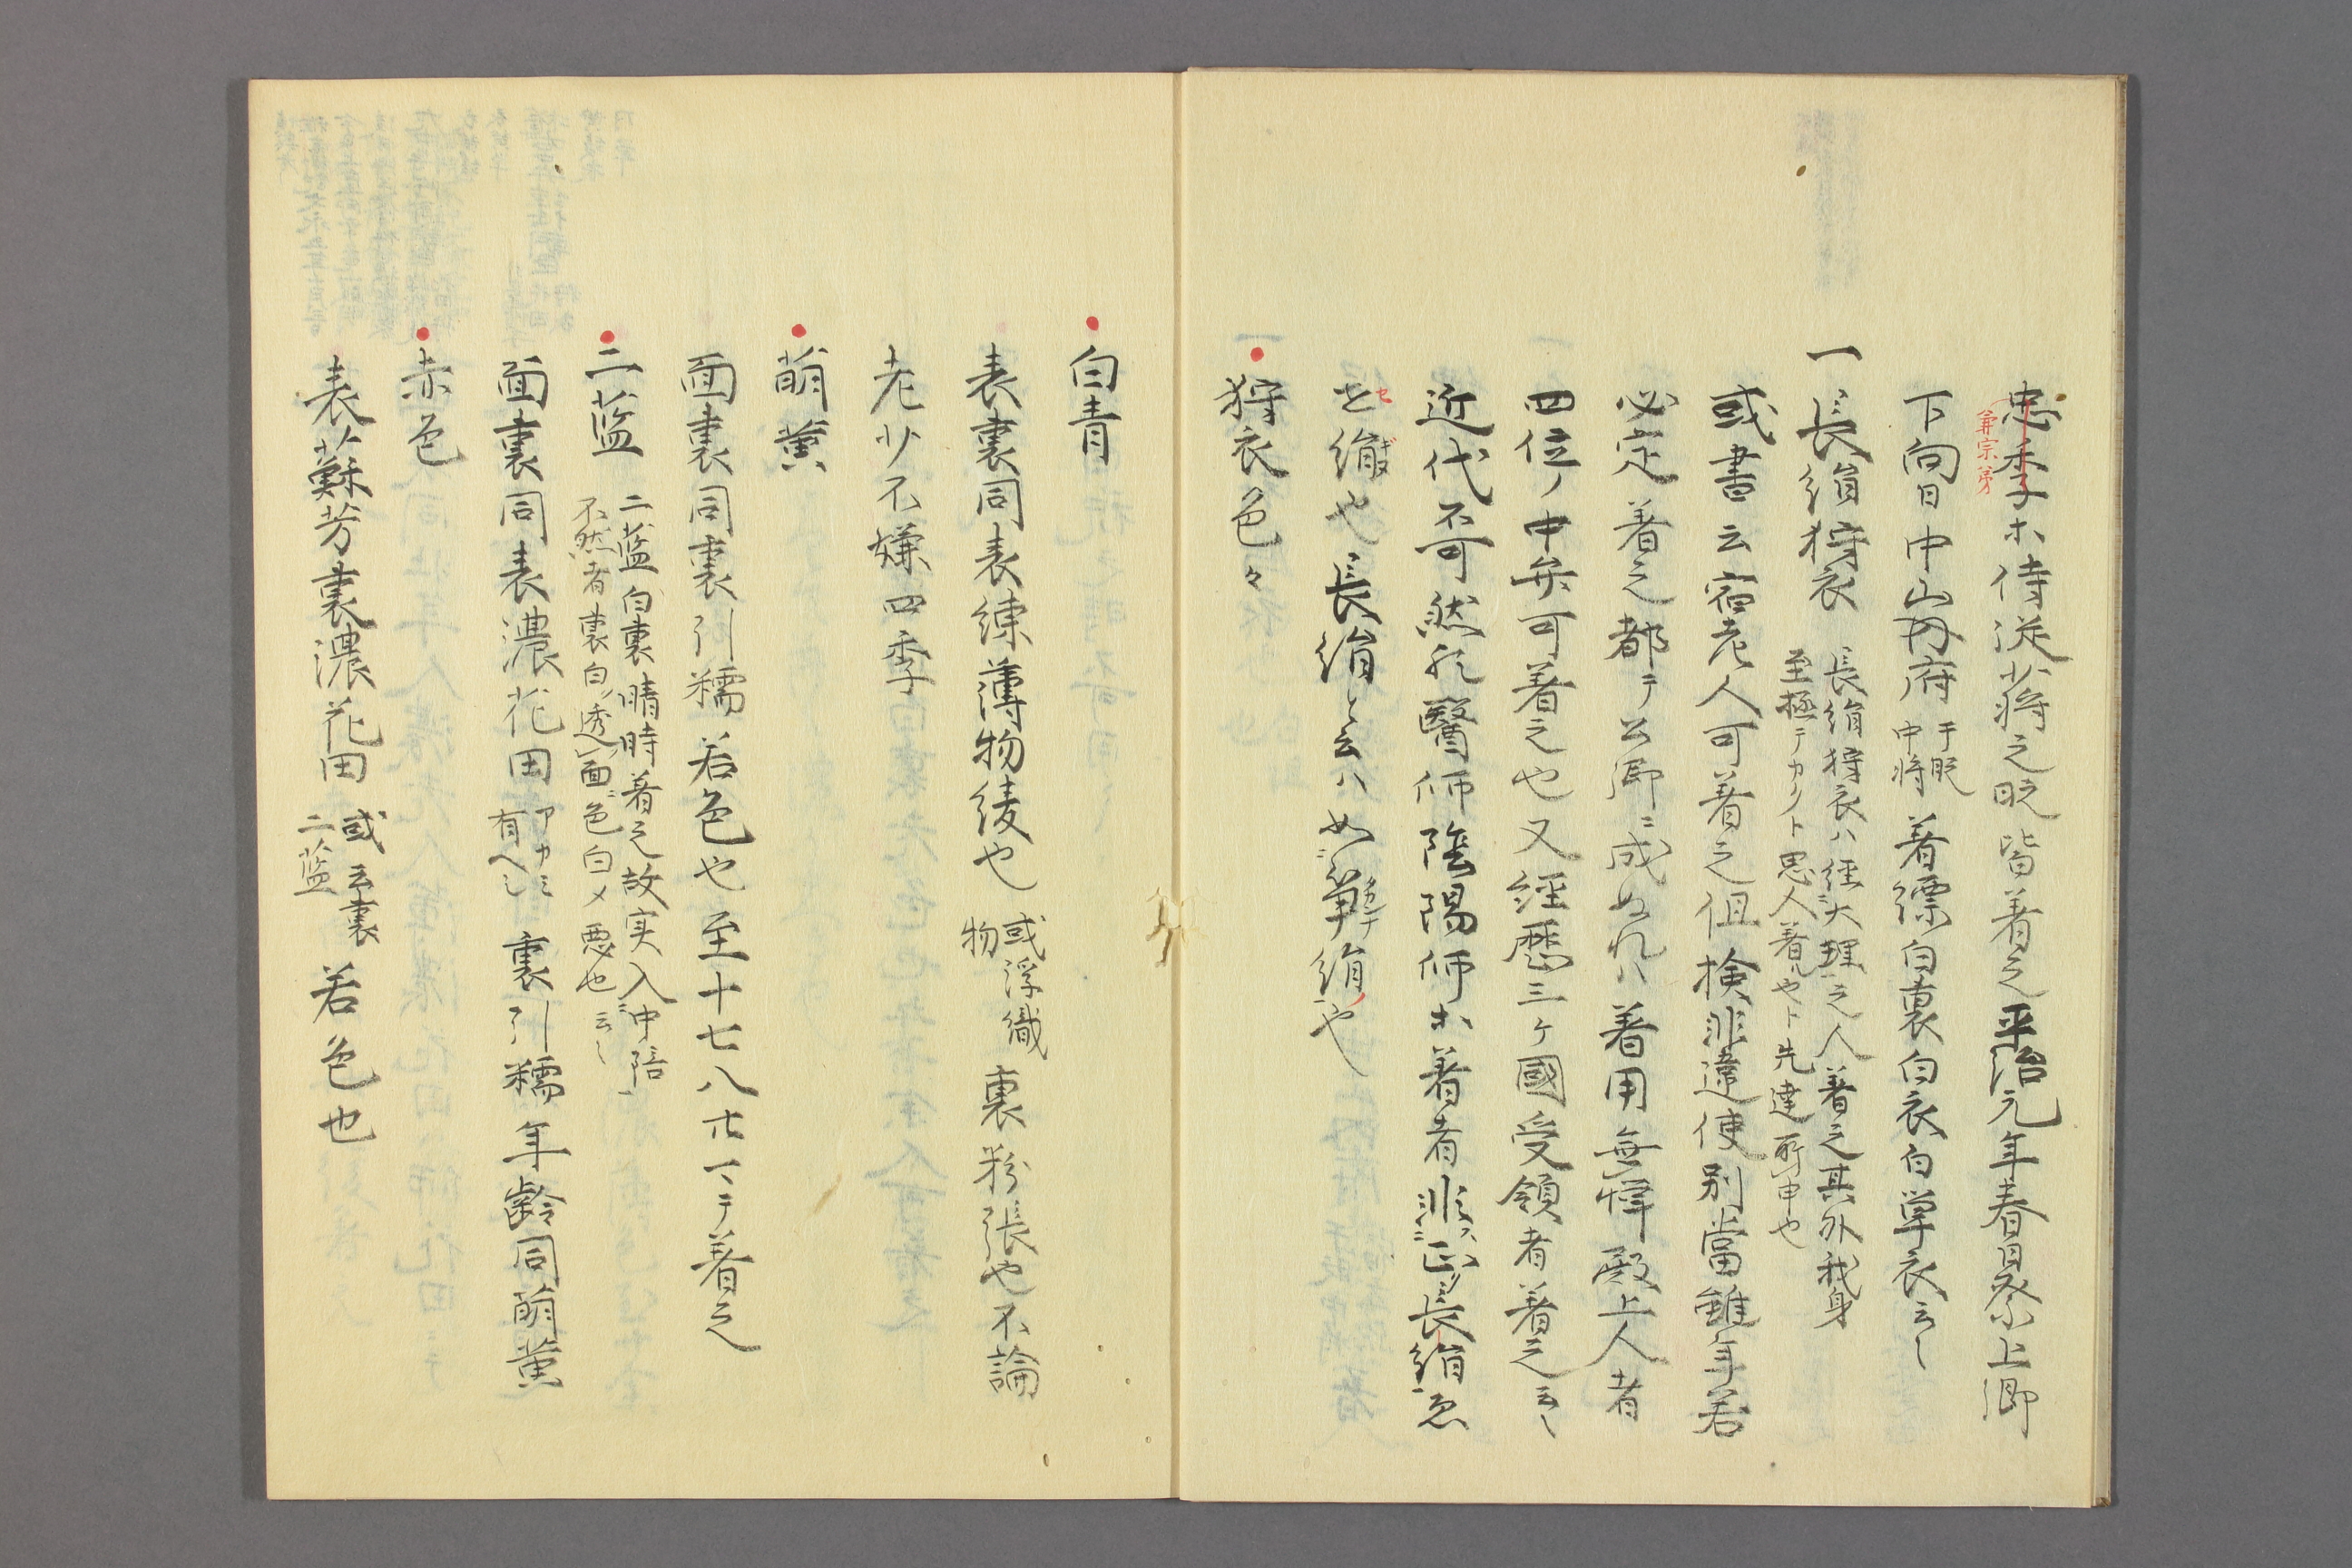 忠季ホ侍従少将之時皆着之平治元年春日祭上卿
兼宗弟
下向日中山内府于時中将着縹白裏白衣白単衣云〻
一長絹狩衣長絹狩衣ハ経大理之人着之其外我身
至極テカクト思人着ルヤト先達所申也
或書云宿老人可着之但検非違使別當雖年若
必定着之都テ公卿ニ成ぬれハ着用無憚殿上人者
四位ノ中年可着之也又経歴三ヶ國受領者着之云〻
近代不可然歟醫師陰陽師ホ着者非正長絹
也長絹と云ハ如絹也
狩衣色々
白青
表裏同表練薄物綾也或浮織物裏粉張也不論
老少不嫌四季
萠黄
面裏同裏引糯若色也至十七八廿マテ着之
二藍二藍白裏晴時着之故実入中陪
不然者裏白透面色白メ悪也云〻
面裏同表濃花田アカミ有ヘシ裏引糯年齢同萠黄
赤色
表蘇芳裏濃花田或云裏二藍若色也